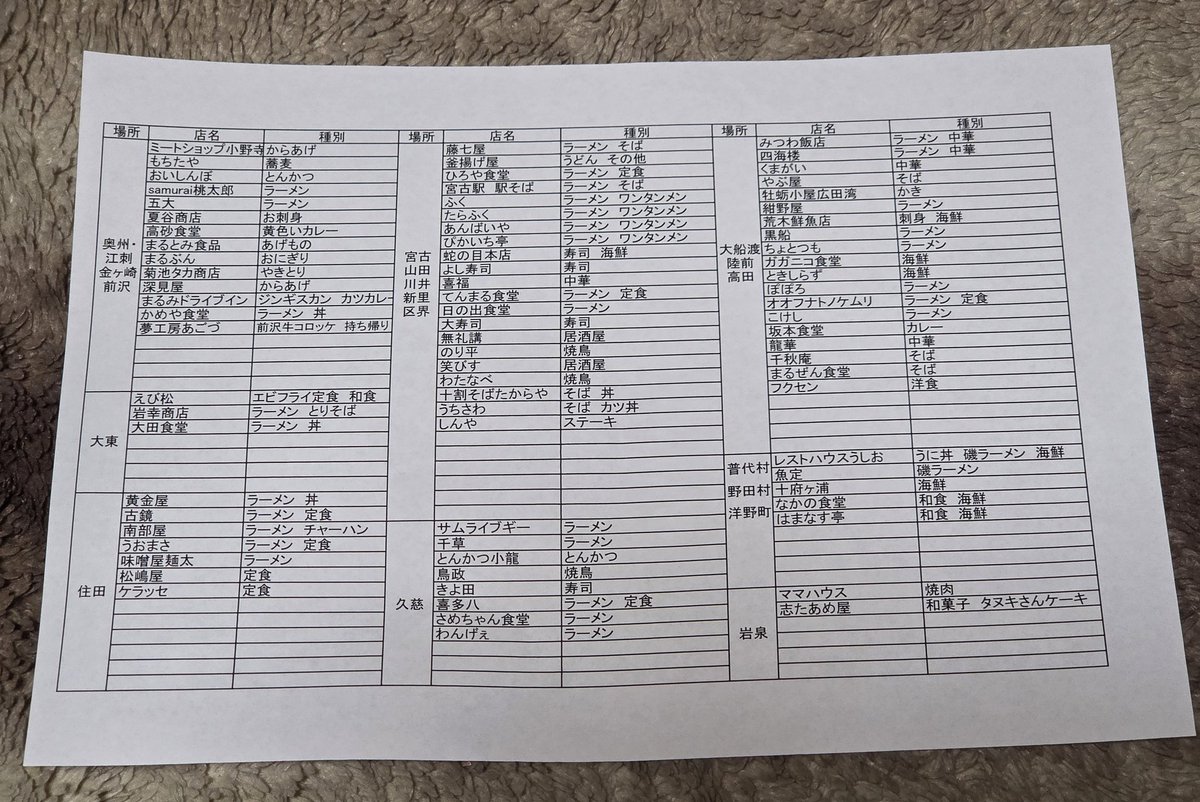 場所 店名 種別
奥州・江刺 金ヶ崎 前沢
ミートショップ小野寺 からあげ
もちたや 蕎麦
おいしんぼ とんかつ
samurai桃太郎 ラーメン
五大 ラーメン
夏谷商店 お刺身
高砂食堂 黄色いカレー
まるとみ食品 あげもの
まるぶん おにぎり
菊池タカ商店 やきとり
深見屋 からあげ
まるみドライブイン ジンギスカン カツカレー
かめや食堂 ラーメン 丼
夢工房あごづ 前沢牛コロッケ 持ち帰り
大東
えび松 エビフライ定食 和食
岩幸商店 ラーメン とりそば
大田食堂 ラーメン 丼
住田
黄金屋 ラーメン 丼
古鏡 ラーメン 定食
南部屋 ラーメン チャーハン
うおまさ ラーメン 定食
味噌屋麺太 ラーメン
松嶋屋 定食
ケラッセ 定食
場所 店名 種別
宮古 山田 川井 新里 区界
藤七屋 ラーメン そば
釜揚げ屋 うどん その他
ひろや食堂 ラーメン 定食
宮古駅 駅そば ラーメン そば
ふく ラーメン ワンタンメン
たらふく ラーメン ワンタンメン
あんばいや ラーメン ワンタンメン
ぴかいち亭 ラーメン ワンタンメン
蛇の目本店 寿司 海鮮
よし寿司 寿司
喜福 中華
てんまる食堂 ラーメン 定食
日の出食堂 ラーメン
大寿司 寿司
無礼講 居酒屋
のり平 焼鳥
笑びす 居酒屋
わたなべ 焼鳥
十割そばたからや そば 丼
うちさわ そば カツ丼
しんや ステーキ
久慈
サムライブギー ラーメン
千草 ラーメン
とんかつ小龍 とんかつ
鳥政 焼鳥
きよ田 寿司
喜多八 ラーメン 定食
さめちゃん食堂 ラーメン
わんげぇ ラーメン
場所 店名 種別
大船渡 陸前 高田
みつわ飯店 ラーメン 中華
四海楼 ラーメン 中華
くまがい 中華
やぶ屋 そば
牡蛎小屋広田湾 かき
紺野屋 ラーメン
荒木鮮魚店 刺身 海鮮
黒船 ラーメン
ちょとつも ラーメン
ガガニコ食堂 海鮮
ときしらず 海鮮
ぽぽろ ラーメン
オオフナトノケムリ ラーメン 定食
こけし ラーメン
坂本食堂 カレー
龍華 中華
千秋庵 そば
まるぜん食堂 そば
フクセン 洋食
普代村 野田村 洋野町
レストハウスうしお うに丼 磯ラーメン 海鮮
魚定 磯ラーメン
十府ヶ浦 海鮮
なかの食堂 和食 海鮮
はまなす亭 和食 海鮮
岩泉
ママハウス 焼肉
志たあめ屋 和菓子 タヌキさんケーキ